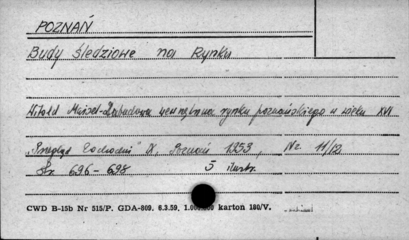 POZNAŃ
Budy śledziowe na Rynku
Witold Maisel - Zabudowa wewnętrzna rynku poznańskiego w wieku XVI
„Przegląd Zachodni" IX, Poznań 1953, Nr. 11/12
Str. 696 - 698 5 ilustr.
CWD B-15b Nr 515/P. GDA-809. 6.3.59. karton 180/V.